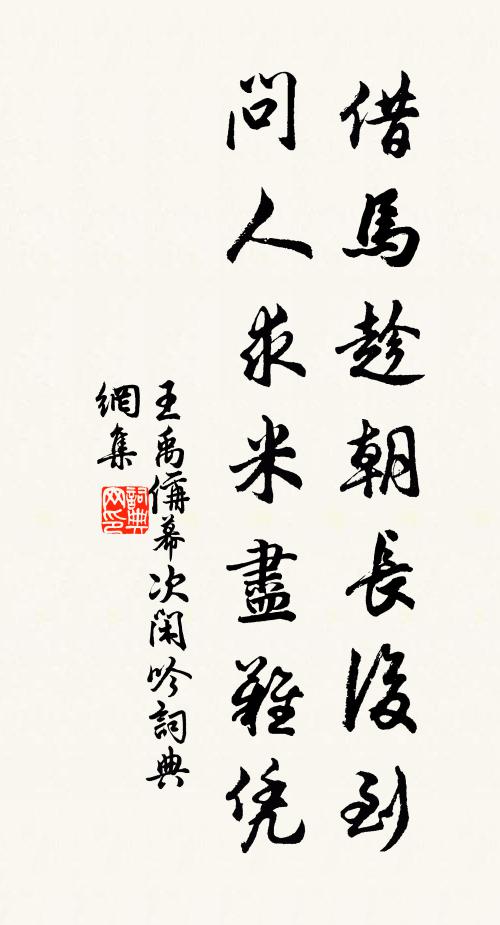 借馬趁朝長後到
問人求米盡難凭
王禹偁幕次閑吟詞典
網集
詞典網印